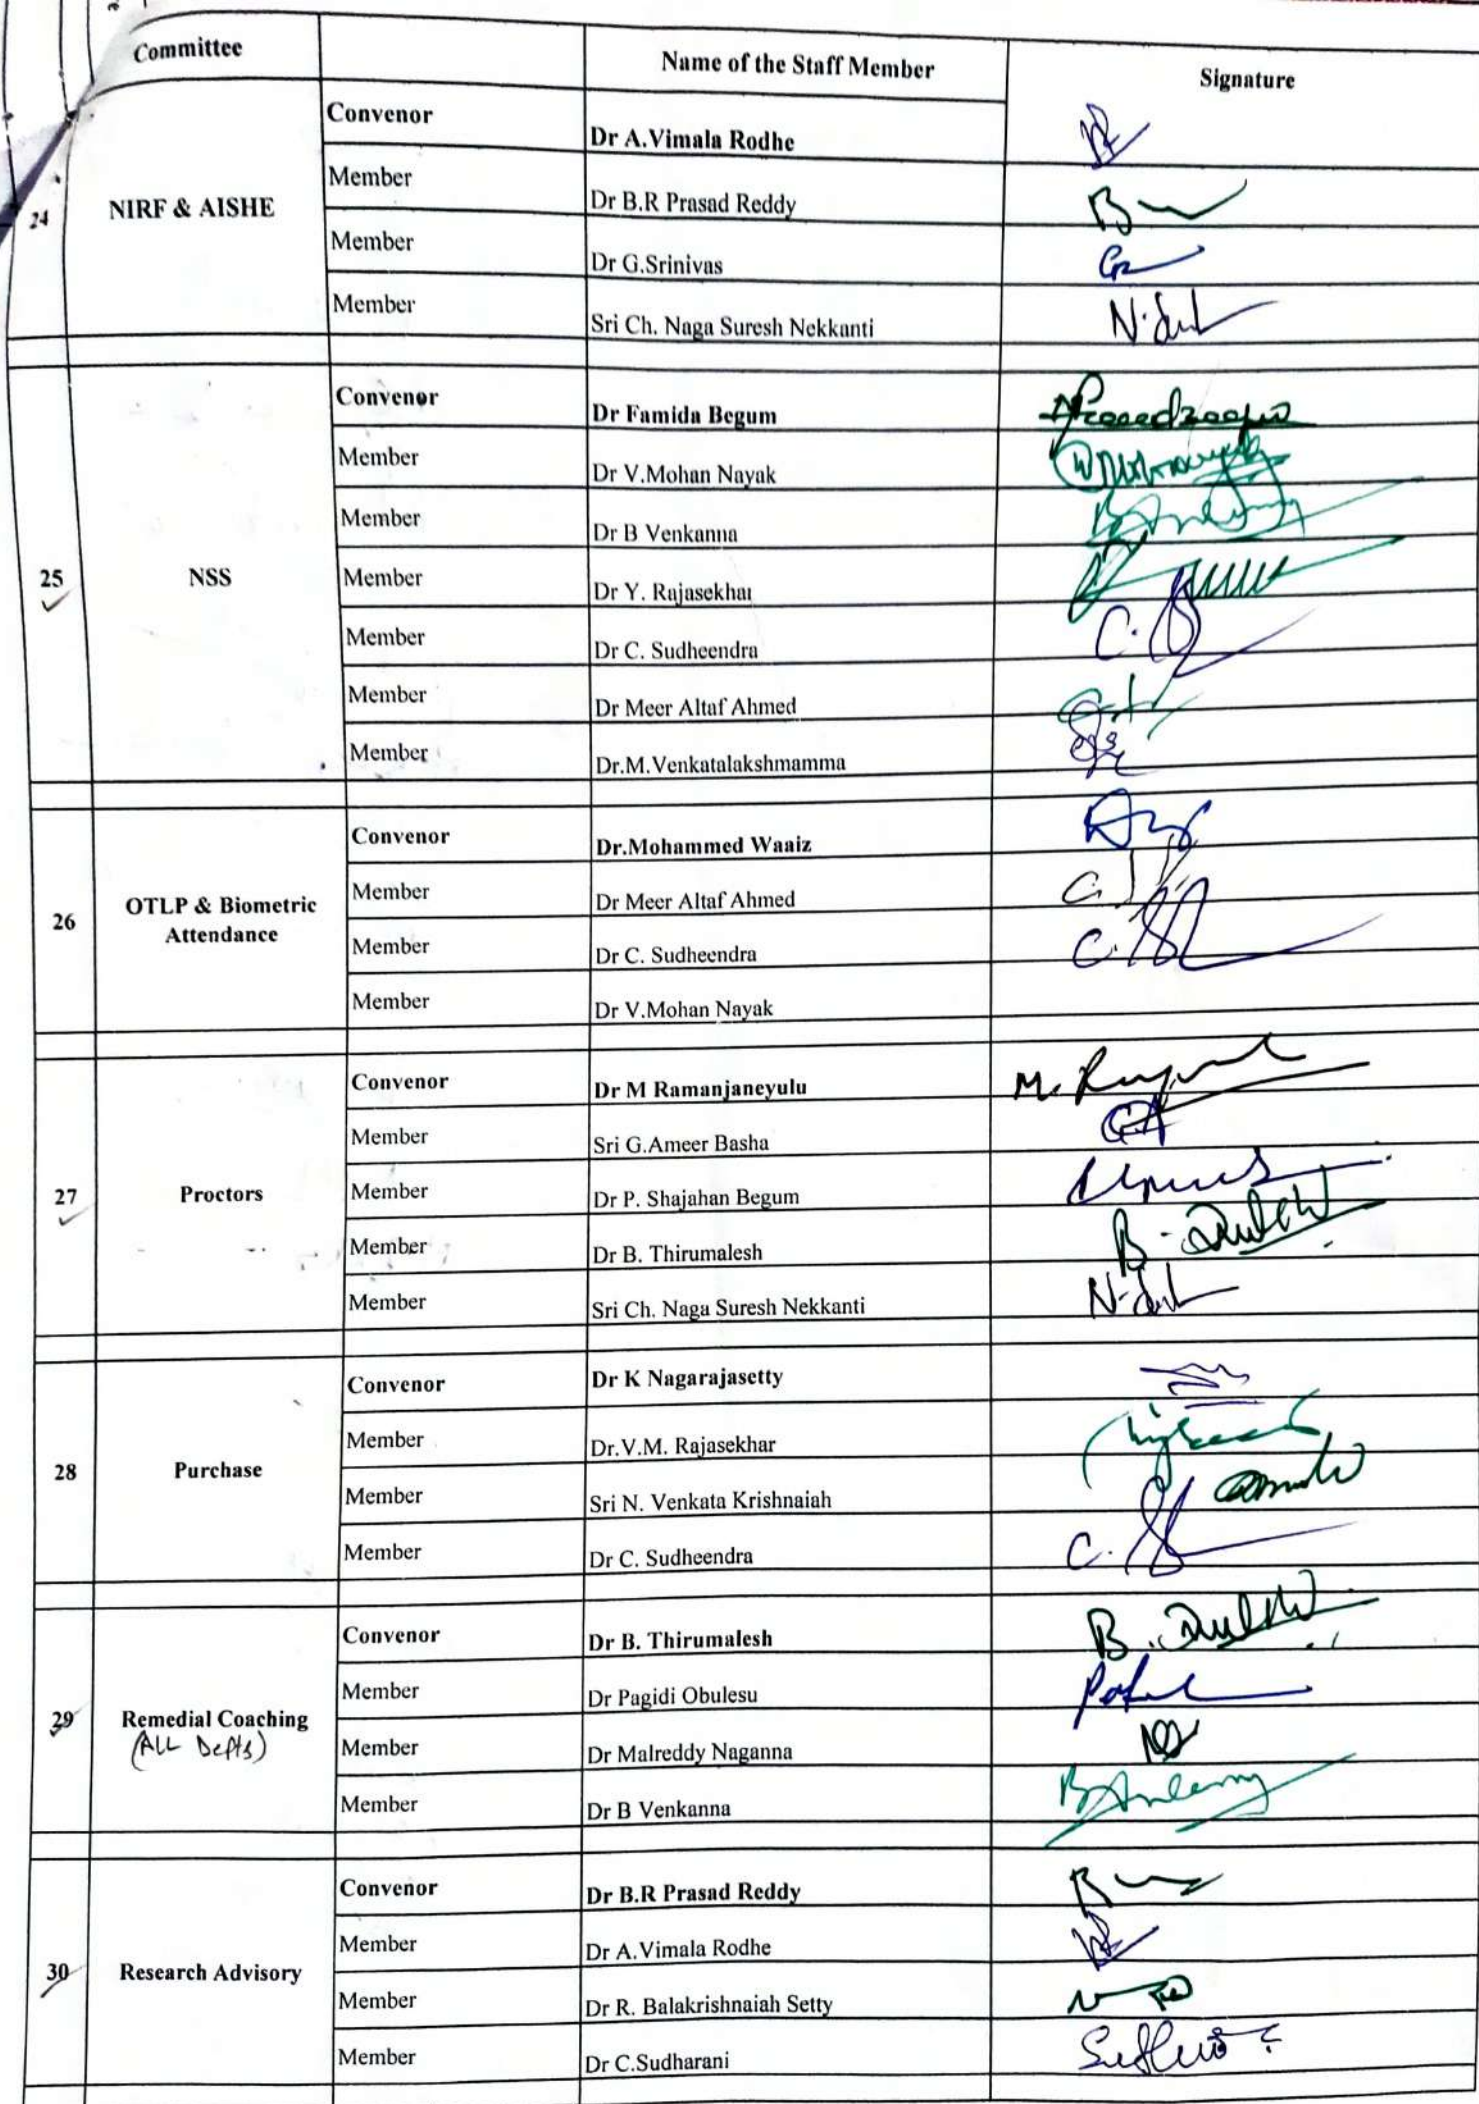 Committee Name of the Staff Member Signature
24 NIRF & AISHE
Convenor Dr A.Vimala Rodhe
Member Dr B.R Prasad Reddy
Member Dr G.Srinivas
Member Sri Ch. Naga Suresh Nekkanti
25 NSS
Convenor Dr Famida Begum
Member Dr V.Mohan Nayak
Member Dr B Venkanna
Member Dr Y. Rajasekhar
Member Dr C. Sudheendra
Member Dr Meer Altaf Ahmed
Member Dr.M.Venkatalakshmamma
26 OTLP & Biometric
Attendance
Convenor Dr.Mohammed Waaiz
Member Dr Meer Altaf Ahmed
Member Dr C. Sudheendra
Member Dr V.Mohan Nayak
27 Proctors
Convenor Dr M Ramanjaneyulu
Member Sri G.Ameer Basha
Member Dr P. Shajahan Begum
Member Dr B. Thirumalesh
Member Sri Ch. Naga Suresh Nekkanti
28 Purchase
Convenor Dr K Nagarajasetty
Member Dr.V.M. Rajasekhar
Member Sri N. Venkata Krishnaiah
Member Dr C. Sudheendra
29 Remedial Coaching
(ALL Depts)
Convenor Dr B. Thirumalesh
Member Dr Pagidi Obulesu
Member Dr Malreddy Naganna
Member Dr B Venkanna
30 Research Advisory
Convenor Dr B.R Prasad Reddy
Member Dr A.Vimala Rodhe
Member Dr R. Balakrishnaiah Setty
Member Dr C.Sudharani